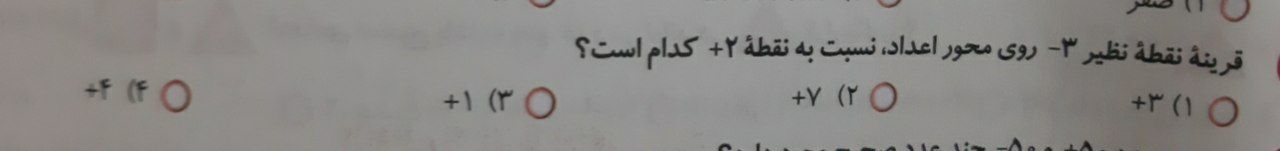 ۱) صفر
قرینهٔ نقطهٔ نظیر ۳- روی محور اعداد، نسبت به نقطهٔ ۲+ کدام است؟
۱) ۳+ ۲) ۷+ ۳) ۱+ ۴) ۴+